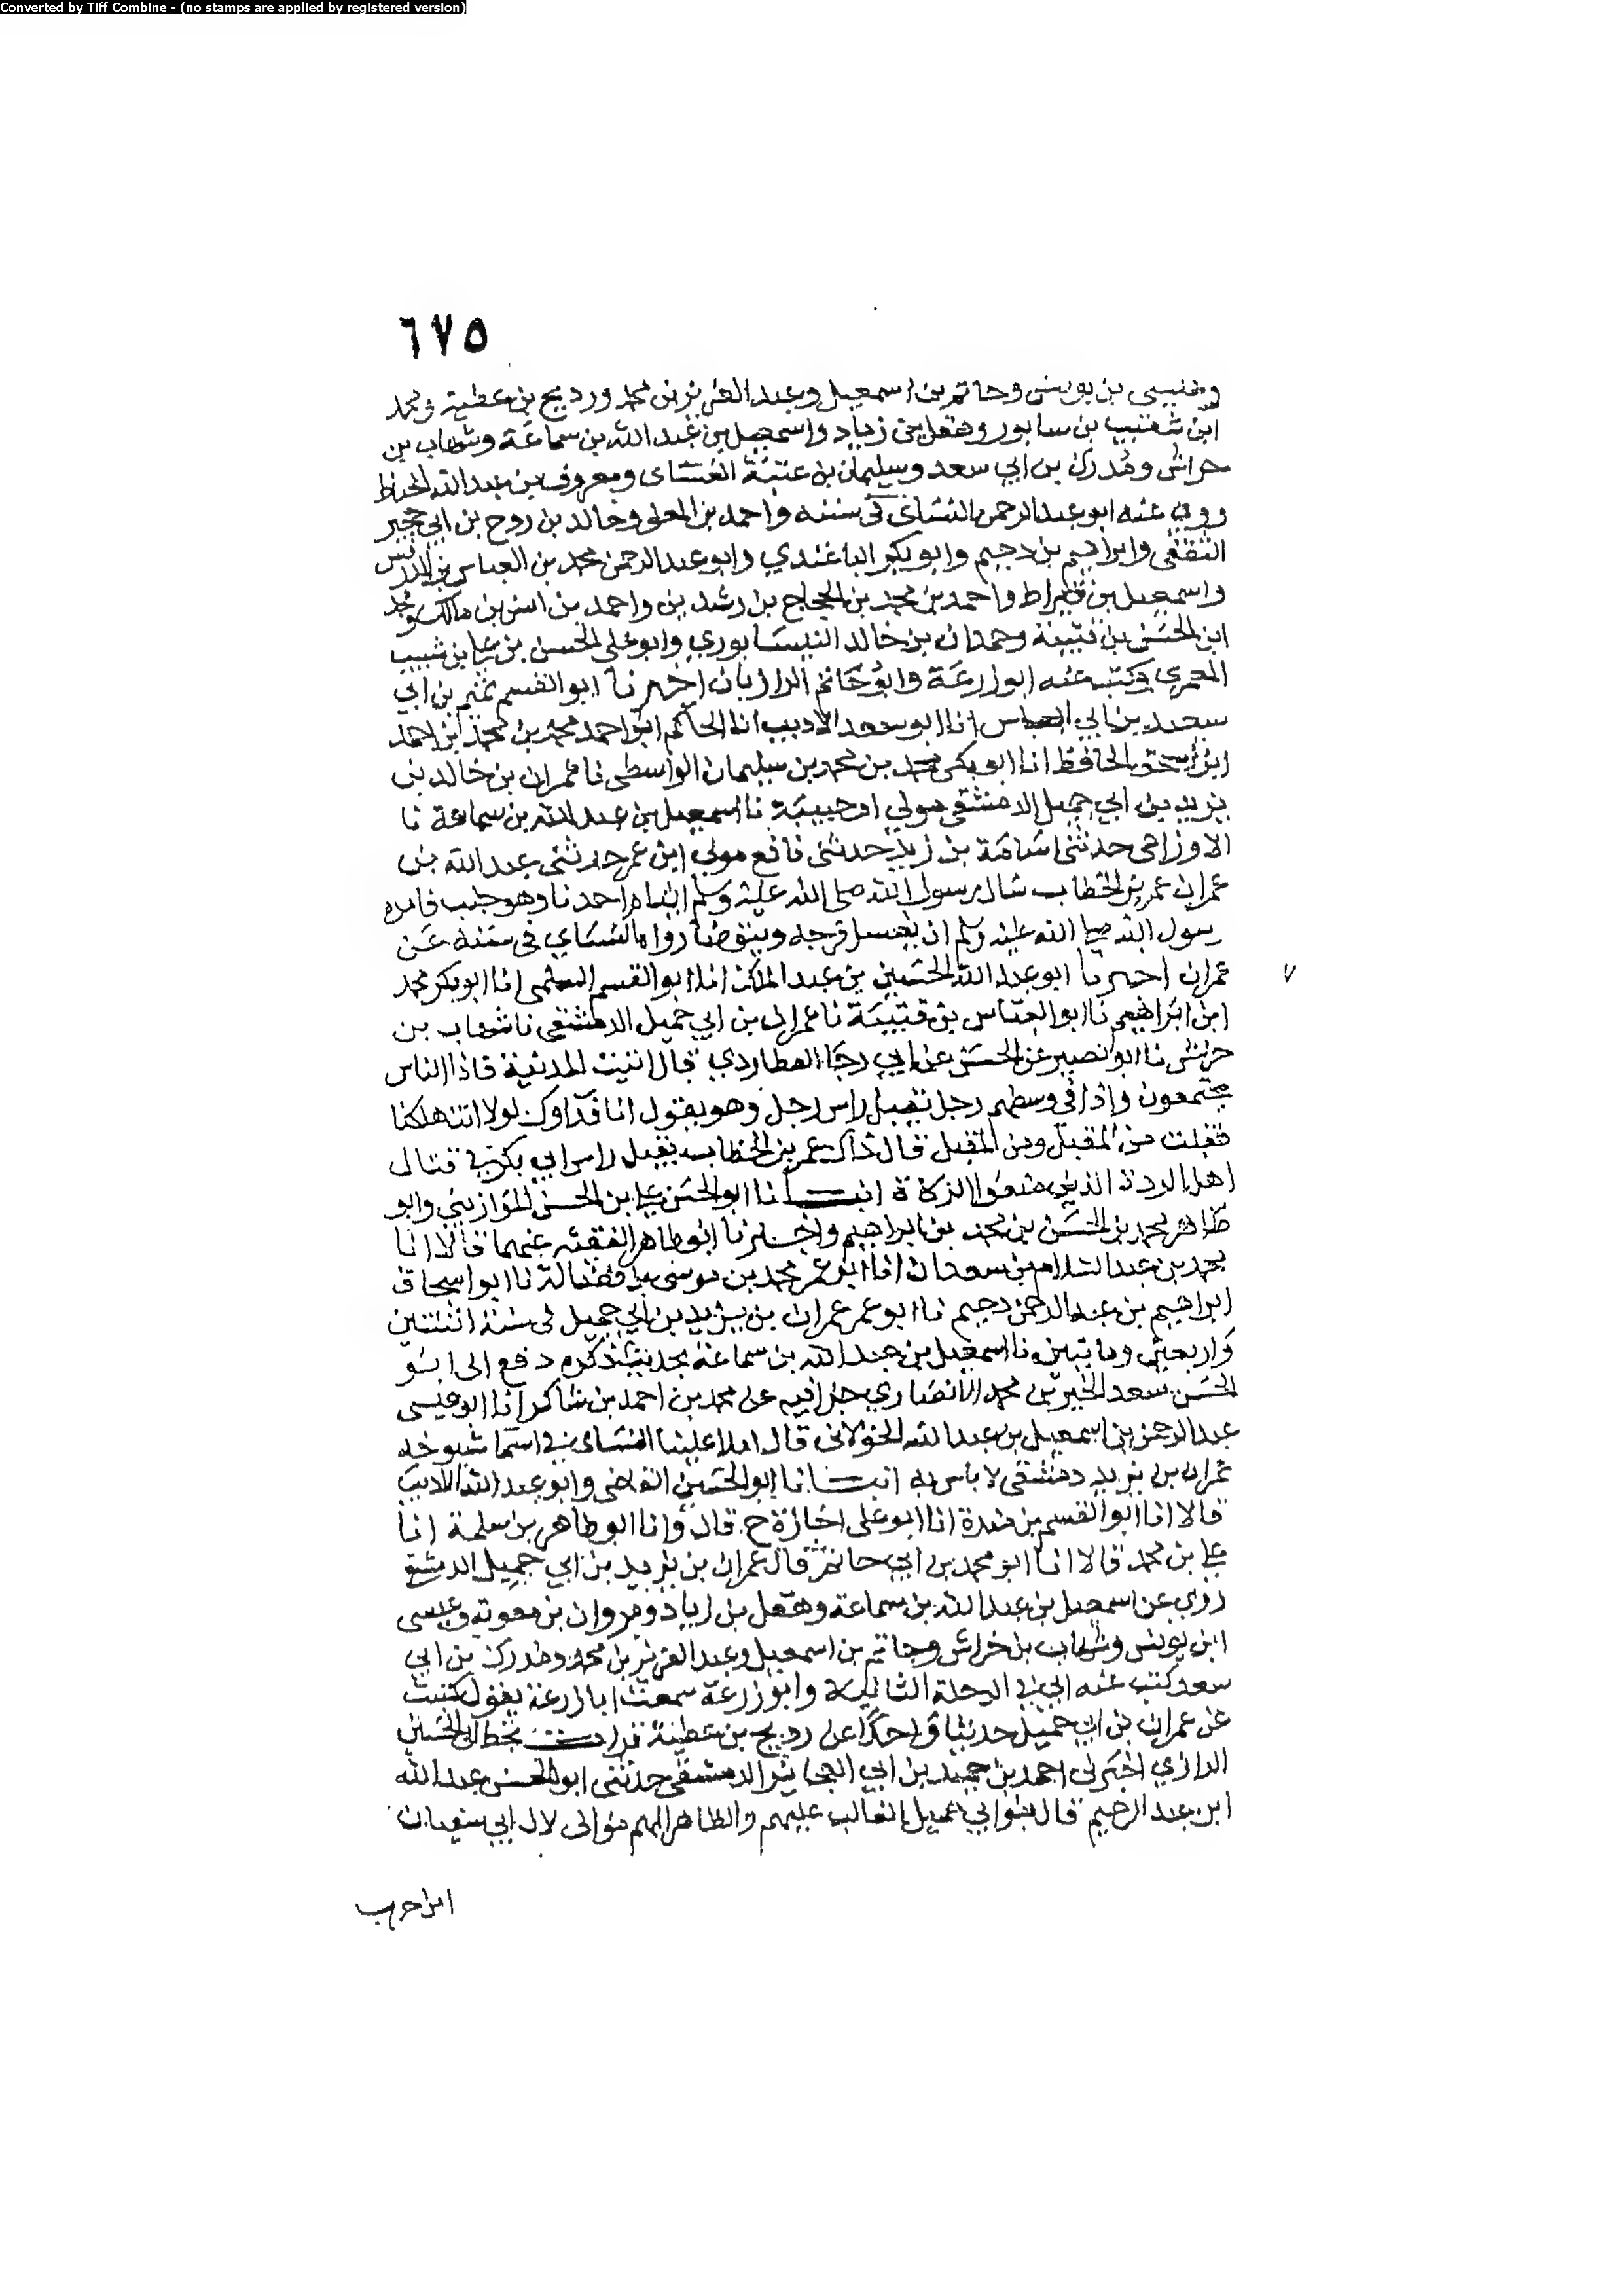 Converted by Tiff Combine - (no stamps are applied by registered version)
٦٧٥
وعيسى بن يونس وحاتم بن اسمعيل وعبد العزيز بن محمد ورديح بن عطية ومحمد
ابن شعيب بن سابور وهقل بن زياد واسمعيل بن عبد الله بن سماعة وشهاب بن
خراش ومدرك بن ابي سعد وسليمان بن عتبة الغساني ومعروف بن عبد الله الخياط
روى عنه ابو عبد الرحمن النسائ في سننه واحمد بن المعلى وخالد بن روح بن ابي حجير
الثقفي وابراهيم بن دحيم وابو بكر الباغندي وابو عبد الرحمن محمد بن العباس بن الدرفس
واسمعيل بن قيراط واحمد بن محمد بن الحجاج بن رشدين واحمد بن انس بن مالك ومحمد
ابن الحسن بن قتيبة وحمدان بن خالد النيسابوري وابو علي الحسن بن علي بن شبيب
المعمري وكتب عنه ابو زرعة وابو حاتم الرازيان اخبرنا ابو القسم تميم بن ابي
سعيد بن ابي العباس انا ابو سعد الاديب انا الحاكم ابو احمد محمد بن محمد بن احمد
ابن اسحق الحافظ انا ابو بكر محمد بن محمد بن سليمان الواسطي نا عمران بن خالد بن
يزيد بن ابي جميل الدمشقي مولى ام حبيبة نا اسمعيل بن عبد الله بن سماعة نا
الاوزاعي حدثني اسامة بن زيد حدثني نافع مولى ابن عمر حدثني عبد الله بن
عمر ان عمر بن الخطاب سال رسول الله صلى الله عليه وسلم اينام احدنا وهو جنب فامره
رسول الله صلى الله عليه وسلم ان يغسل فرجه ويتوضا رواه النسائ في سننه عن
عمران اخبرنا ابو عبد الله الحسين بن عبد الملك انا ابو القسم السلمي انا ابو بكر محمد
ابن ابراهيم نا ابو العباس بن قتيبة نا عمران بن ابي جميل الدمشقي نا شهاب بن
خراش نا ابو نصير عن الحسن عن ابي رجا العطاردي قال اتيت المدينة فاذا الناس
مجتمعون واذا في وسطهم رجل يقبل راس رجل وهو يقول انا فداوك لولا انت هلكنا
فقلت من المقبل ومن المقبل قال ذاك عمر بن الخطاب يقبل راس ابي بكر في قتال
اهل الردة الذين منعوا الزكاة انبانا ابو الحسن علي بن الحسن الموازيني وابو
طاهر محمد بن الحسن بن محمد بن ابراهيم واخبرنا ابو طاهر الفقيه عنهما قالا انا
محمد بن عبد السلام بن سعدان انا ابو عمر محمد بن موسى بن فضالة نا ابو اسحاق
ابراهيم بن عبد الرحمن دحيم نا ابو عمر عمران بن يزيد بن ابي جميل في سنة اثنتين
واربعين وماتين نا اسمعيل بن عبد الله بن سماعة بحديث ذكره دفع الى ابو
الحسن سعد الخير بن محمد الانصاري جزا فيه عن محمد بن احمد بن شاكر انا ابو عيسى
عبد الرحمن بن اسمعيل بن عبد الله الخولاني قال املا علينا النسائ في اسما شيوخه
عمران بن يزيد دمشقي لا باس به انبانا ابو الحسين القاضي وابو عبد الله الاديب
قالا انا ابو القسم بن مندة انا ابو علي اجازة ح قال وانا ابو طاهر بن سلمة انا
علي بن محمد قالا انا ابو محمد بن ابي حاتم قال عمران بن يزيد بن ابي جميل الدمشقي
روى عن اسمعيل بن عبد الله بن سماعة وهقل بن زياد ومروان بن معوية وعيسى
ابن يونس وشهاب بن خراش وحاتم بن اسمعيل وعبد العزيز بن محمد ومدرك بن ابي
سعد كتب عنه ابي في الرحلة الثانية وابو زرعة سمعت ابا زرعة يقول كتبت
عن عمران بن ابي جميل حديثا واحدا عن رديح بن عطية قرات بخط ابي الحسين
الرازي اخبرني احمد بن حميد بن ابي العجائز الدمشقي حدثني ابو الحسن عبد الله
ابن عبد الرحيم قال بنو ابي جميل الغالب عليهم والظاهر انهم موالى لال ابي سفيان
ابن حرب